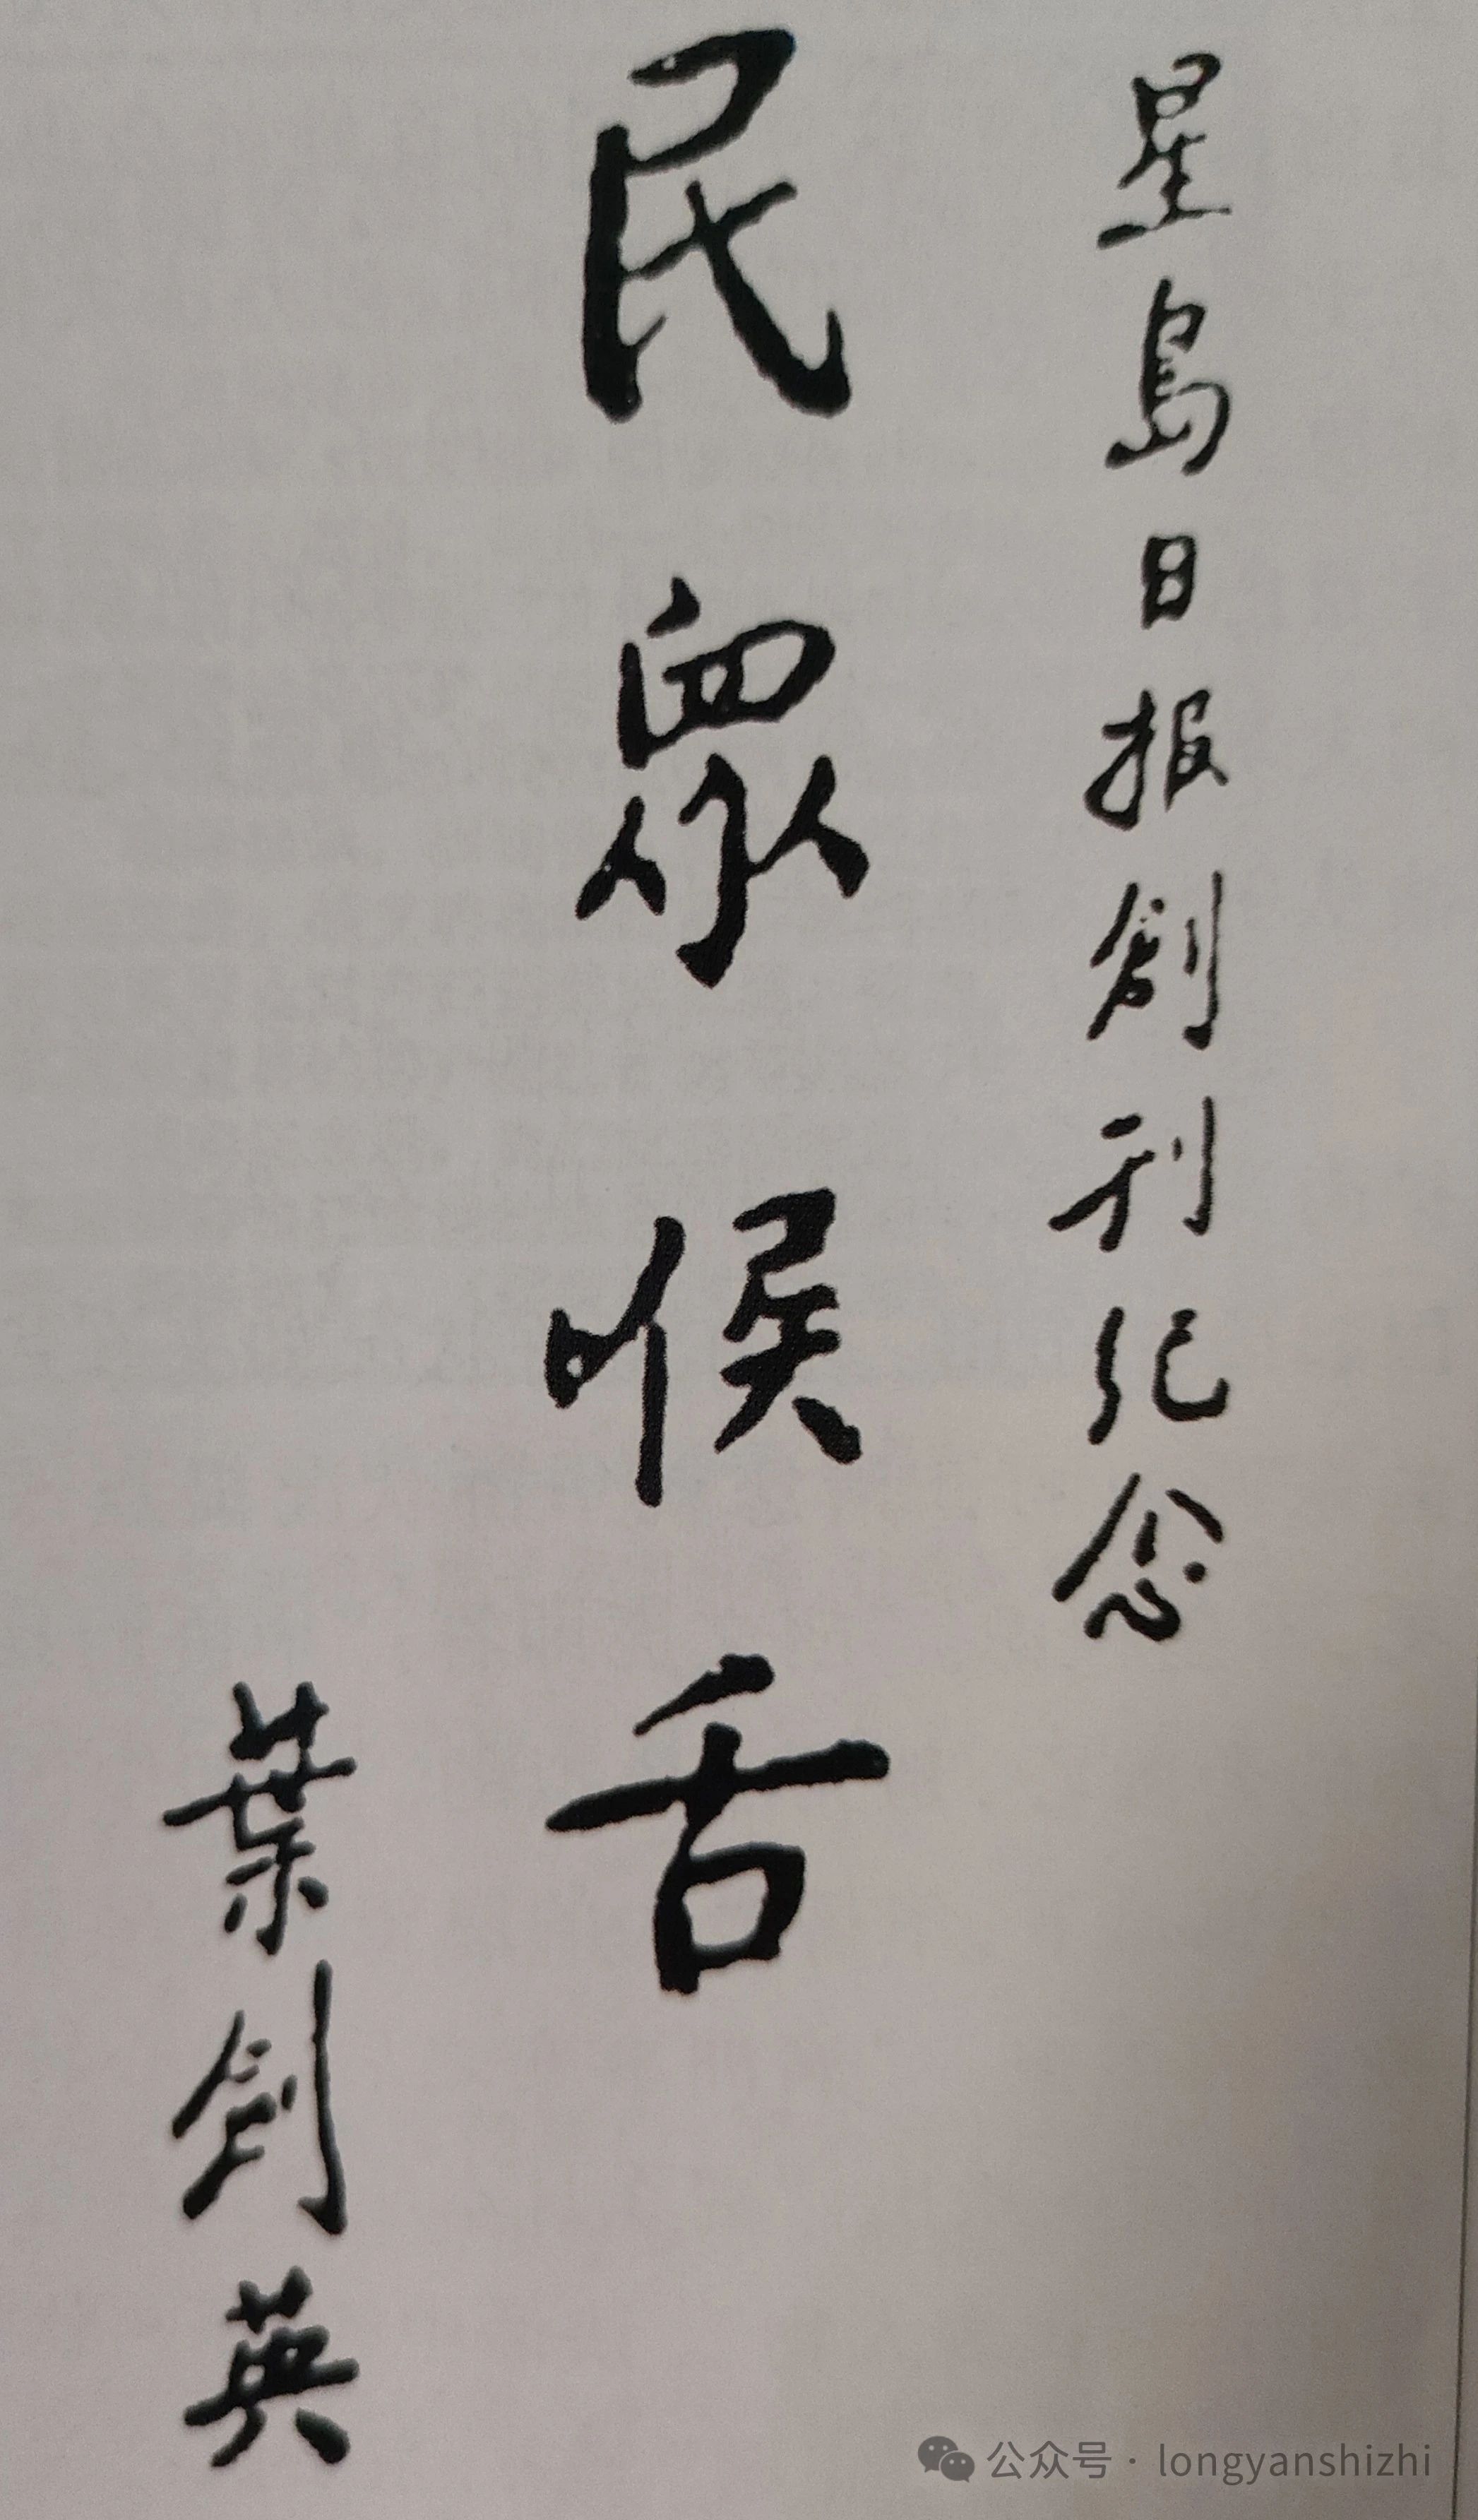 星島日报創刊纪念
民眾喉舌
葉劍英
公众号 · longyanshizhi